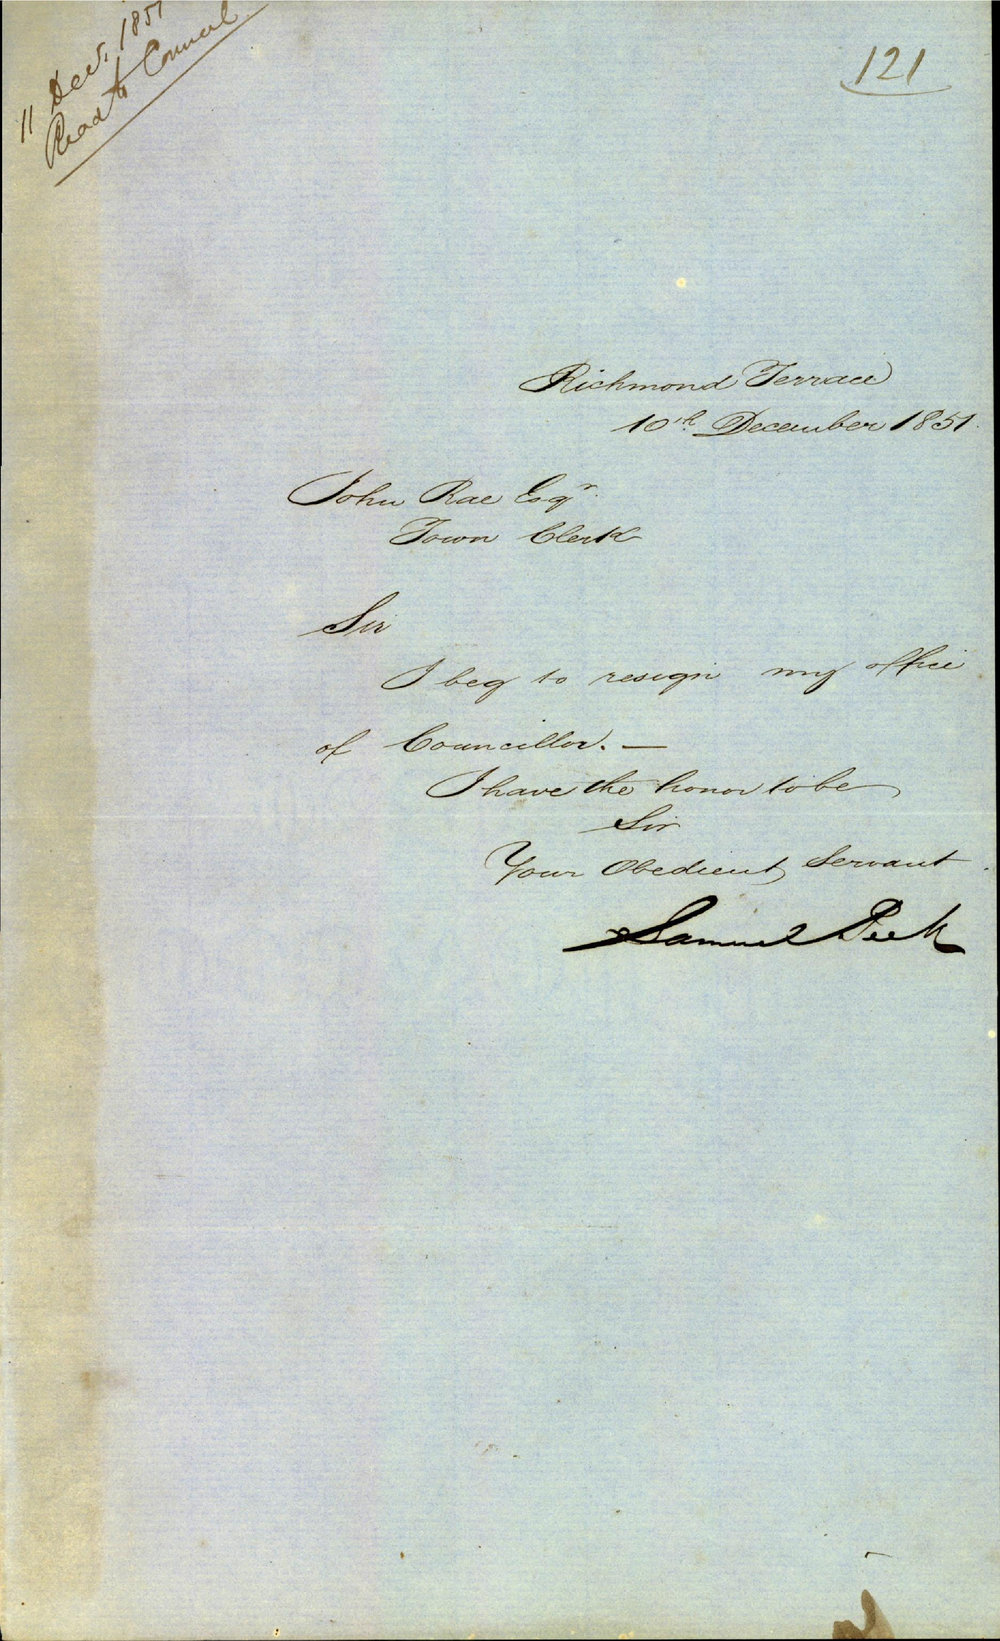 11 Decr. 1851
Read to Council
121
Richmond Terrace
10th December 1851.
John Rae Esqr.
Town Clerk
Sir
I beg to resign my office
of Councillor. —
I have the honor to be
Sir
Your Obedient Servant
Samuel Peek